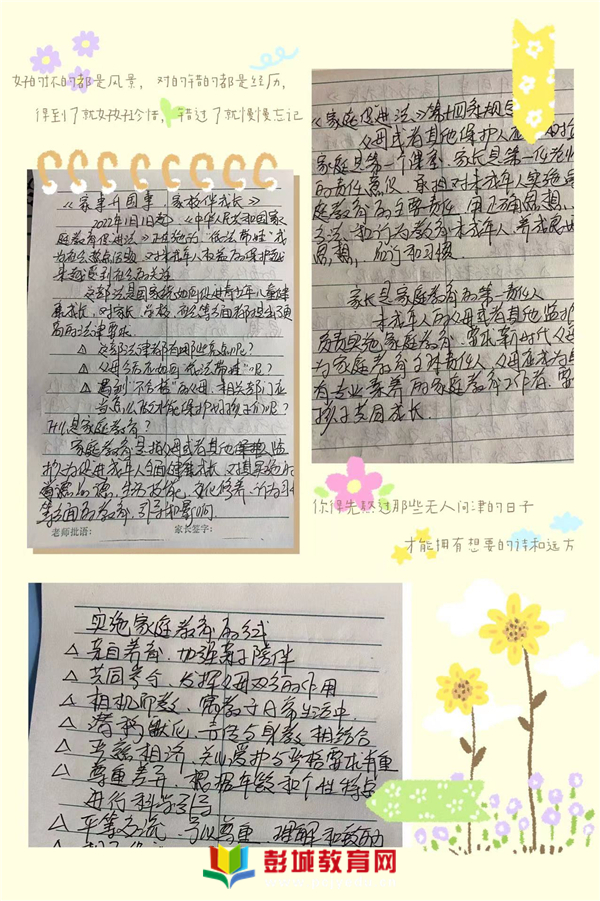 好的坏的都是风景，对的错的都是经历，
得到了就好好珍惜，错过了就慢慢忘记
《家事升国事，家校伴成长》
2022年1月1日起，《中华人民共和国家
庭教育促进法》正式施行，“依法带娃”成
为社会热点话题，对未成年人权益的保护越
来越受到社会的关注
这部法是国家统如何促进青少年儿童健
康成长，对家长、学校、社会等方面都提出了更
高的法律要求
△ 这部法律都有哪些亮点呢？
△ 父母今后如何“依法带娃”呢？
△ 遇到“不合格”的父母，相关部门应
当怎么做才能保护好孩子们呢？
什么是家庭教育？
家庭教育是指父母或者其他监
护人为促进未成年人全面健康成长，对其实施的
道德品德、生活技能、文化修养、行为习
等方面的教育、引导和影响
老师批语： 家长签字：
《家庭促进法》第十四条规定
父母或者其他保护人应
家庭是第一个课堂、家长是第一任老师
的责任意识，承担对未成年人实施家
庭教育的主要责任，用正确思想、
方法和行为教育未成年人养成良好
思想、行为和习惯
家长是家庭教育的第一责任人
未成年人的父母或者其他监护
负责实施家庭教育，要求新时代父母
为家庭教育主体责任人，父母应成为具
有专业素养的家庭教育工作者，要
孩子共同成长
你得先熬过那些无人问津的日子
才能拥有想要的诗和远方
实施家庭教育的方式
△ 亲自养育，加强亲子陪伴
△ 共同参与，发挥父母双方的作用
△ 相机而教，寓教于日常生活中
△ 潜移默化，言传与身教相结合
△ 严慈相济，关心爱护与严格要求并重
△ 尊重差异，根据年龄和个性特点
进行科学引导
△ 平等交流，予以尊重、理解和鼓励
彭城教育网